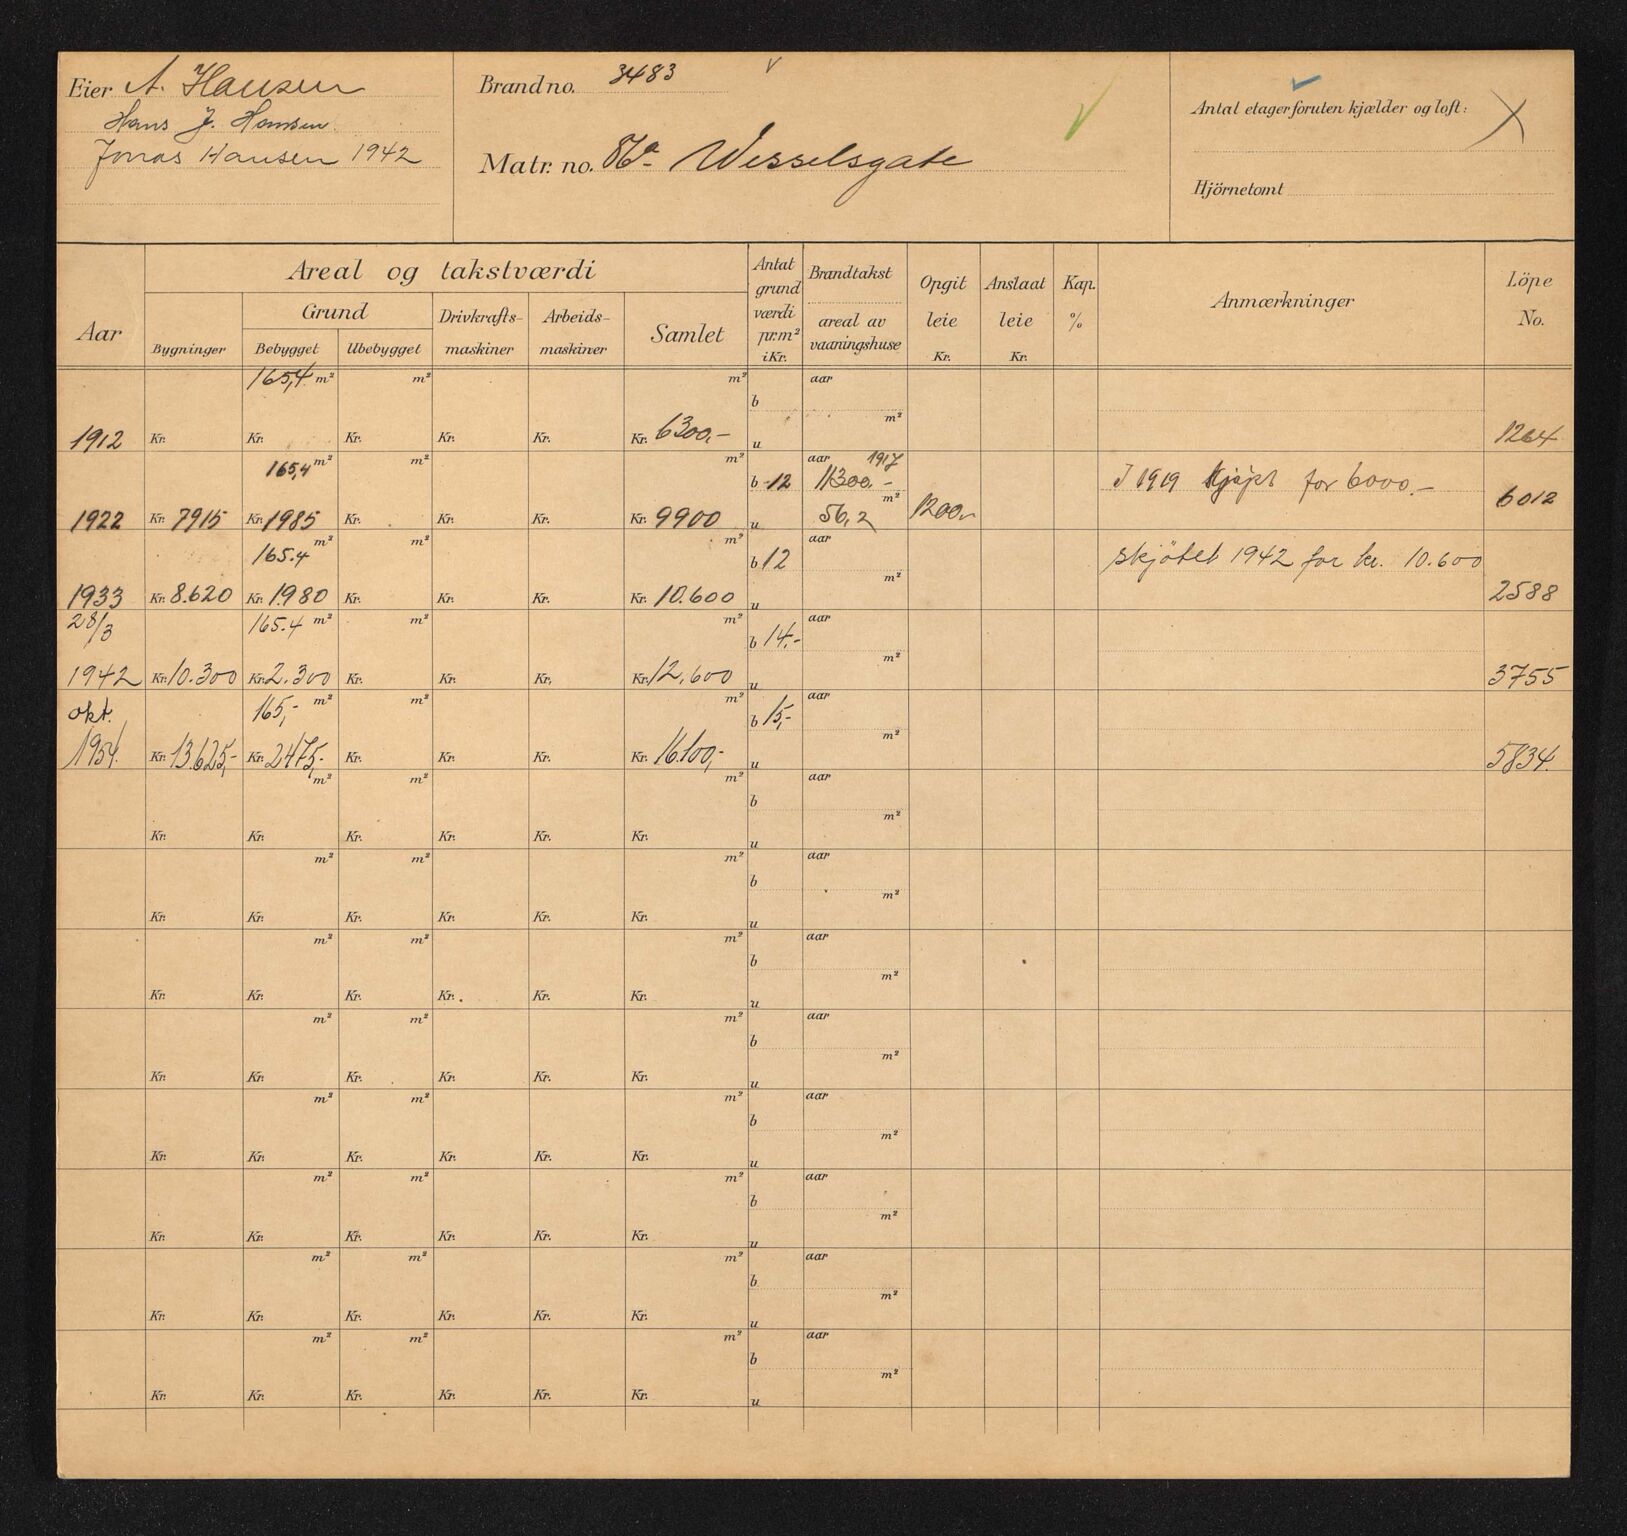 Eier A. Hansen
Hans J. Hansen.
Jonas Hansen 1942
Brandno. 3483
Matr. no. Wesselsgate
Antal etager foruten kjælder og loft:
Hjörnetomt
Aar
Areal og takstværdi
Bygninger
Grund
Bebygget
Ubebygget
Drivkrafts-
maskiner
Arbeids-
maskiner
Samlet
Antat
grund
værdi
pr.m²
i Kr.
Brandtakst
areal av
vaaningshuse
Opgit
leie
Kr.
Anslaat
leie
Kr.
Kap.
%
Anmærkninger
Löpe
No.
165,4 m² m² m² b aar
m²
1912 Kr. Kr. Kr. Kr. Kr. Kr. 6300,- u 1264
165,4 m² m² m² b 12 aar 1917 11300.- I 1919 kjøpt for 6000.-
m²
1922 Kr. 7915 Kr. 1985 Kr. Kr. Kr. Kr. 9900 u 56,2 1200,- 6012
165.4 m² m² m² b 12 aar skjötet 1942 for kr. 10.600
m²
1933 Kr. 8.620 Kr. 1.980 Kr. Kr. Kr. Kr. 10.600 u 2588
28/3 165.4 m² m² m² b 14,- aar
m²
1942 Kr. 10.300 Kr. 2.300 Kr. Kr. Kr. Kr. 12.600 u 3755
okt. 165,- m² m² m² b 15,- aar
m²
1954. Kr. 13.625,- Kr. 2475,- Kr. Kr. Kr. Kr. 16.100,- u 5834.
m² m² m² b aar
m²
Kr. Kr. Kr. Kr. Kr. Kr. u
m² m² m² b aar
m²
Kr. Kr. Kr. Kr. Kr. Kr. u
m² m² m² b aar
m²
Kr. Kr. Kr. Kr. Kr. Kr. u
m² m² m² b aar
m²
Kr. Kr. Kr. Kr. Kr. Kr. u
m² m² m² b aar
m²
Kr. Kr. Kr. Kr. Kr. Kr. u
m² m² m² b aar
m²
Kr. Kr. Kr. Kr. Kr. Kr. u
m² m² m² b aar
m²
Kr. Kr. Kr. Kr. Kr. Kr. u
m² m² m² b aar
m²
Kr. Kr. Kr. Kr. Kr. Kr. u